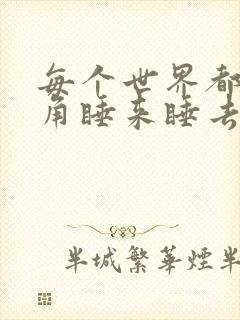 每个世界都
角睡来睡去
半城繁華煙半